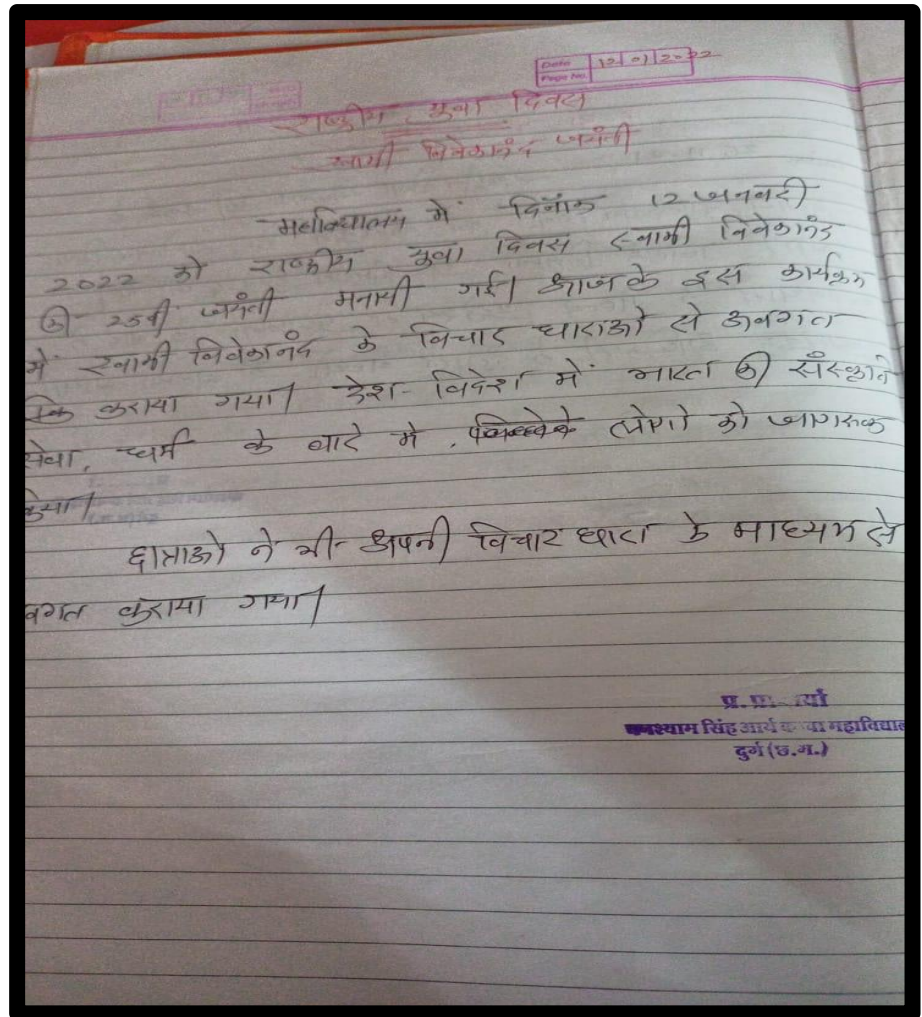 Date 12/01/2022
Page No.
राष्ट्रीय युवा दिवस
स्वामी विवेकानंद जयंती
महाविद्यालय में दिनांक 12 जनवरी
2022 को राष्ट्रीय युवा दिवस स्वामी विवेकानंद
की 25वी जयंती मनायी गई। आज के इस कार्यक्रम
में स्वामी विवेकानंद के विचार धाराओ से अवगत
कराया गया। देश-विदेश में भारत की संस्कृति
सेवा, धर्म के बारे में, लोगो को जागरूक
किया।
छात्राओ ने भी अपनी विचार धारा के माध्यम से
वगत कराया गया।
प्र. प्रा
श्याम सिंह आर्य महाविद्याल
दुर्ग (छ.ग.)